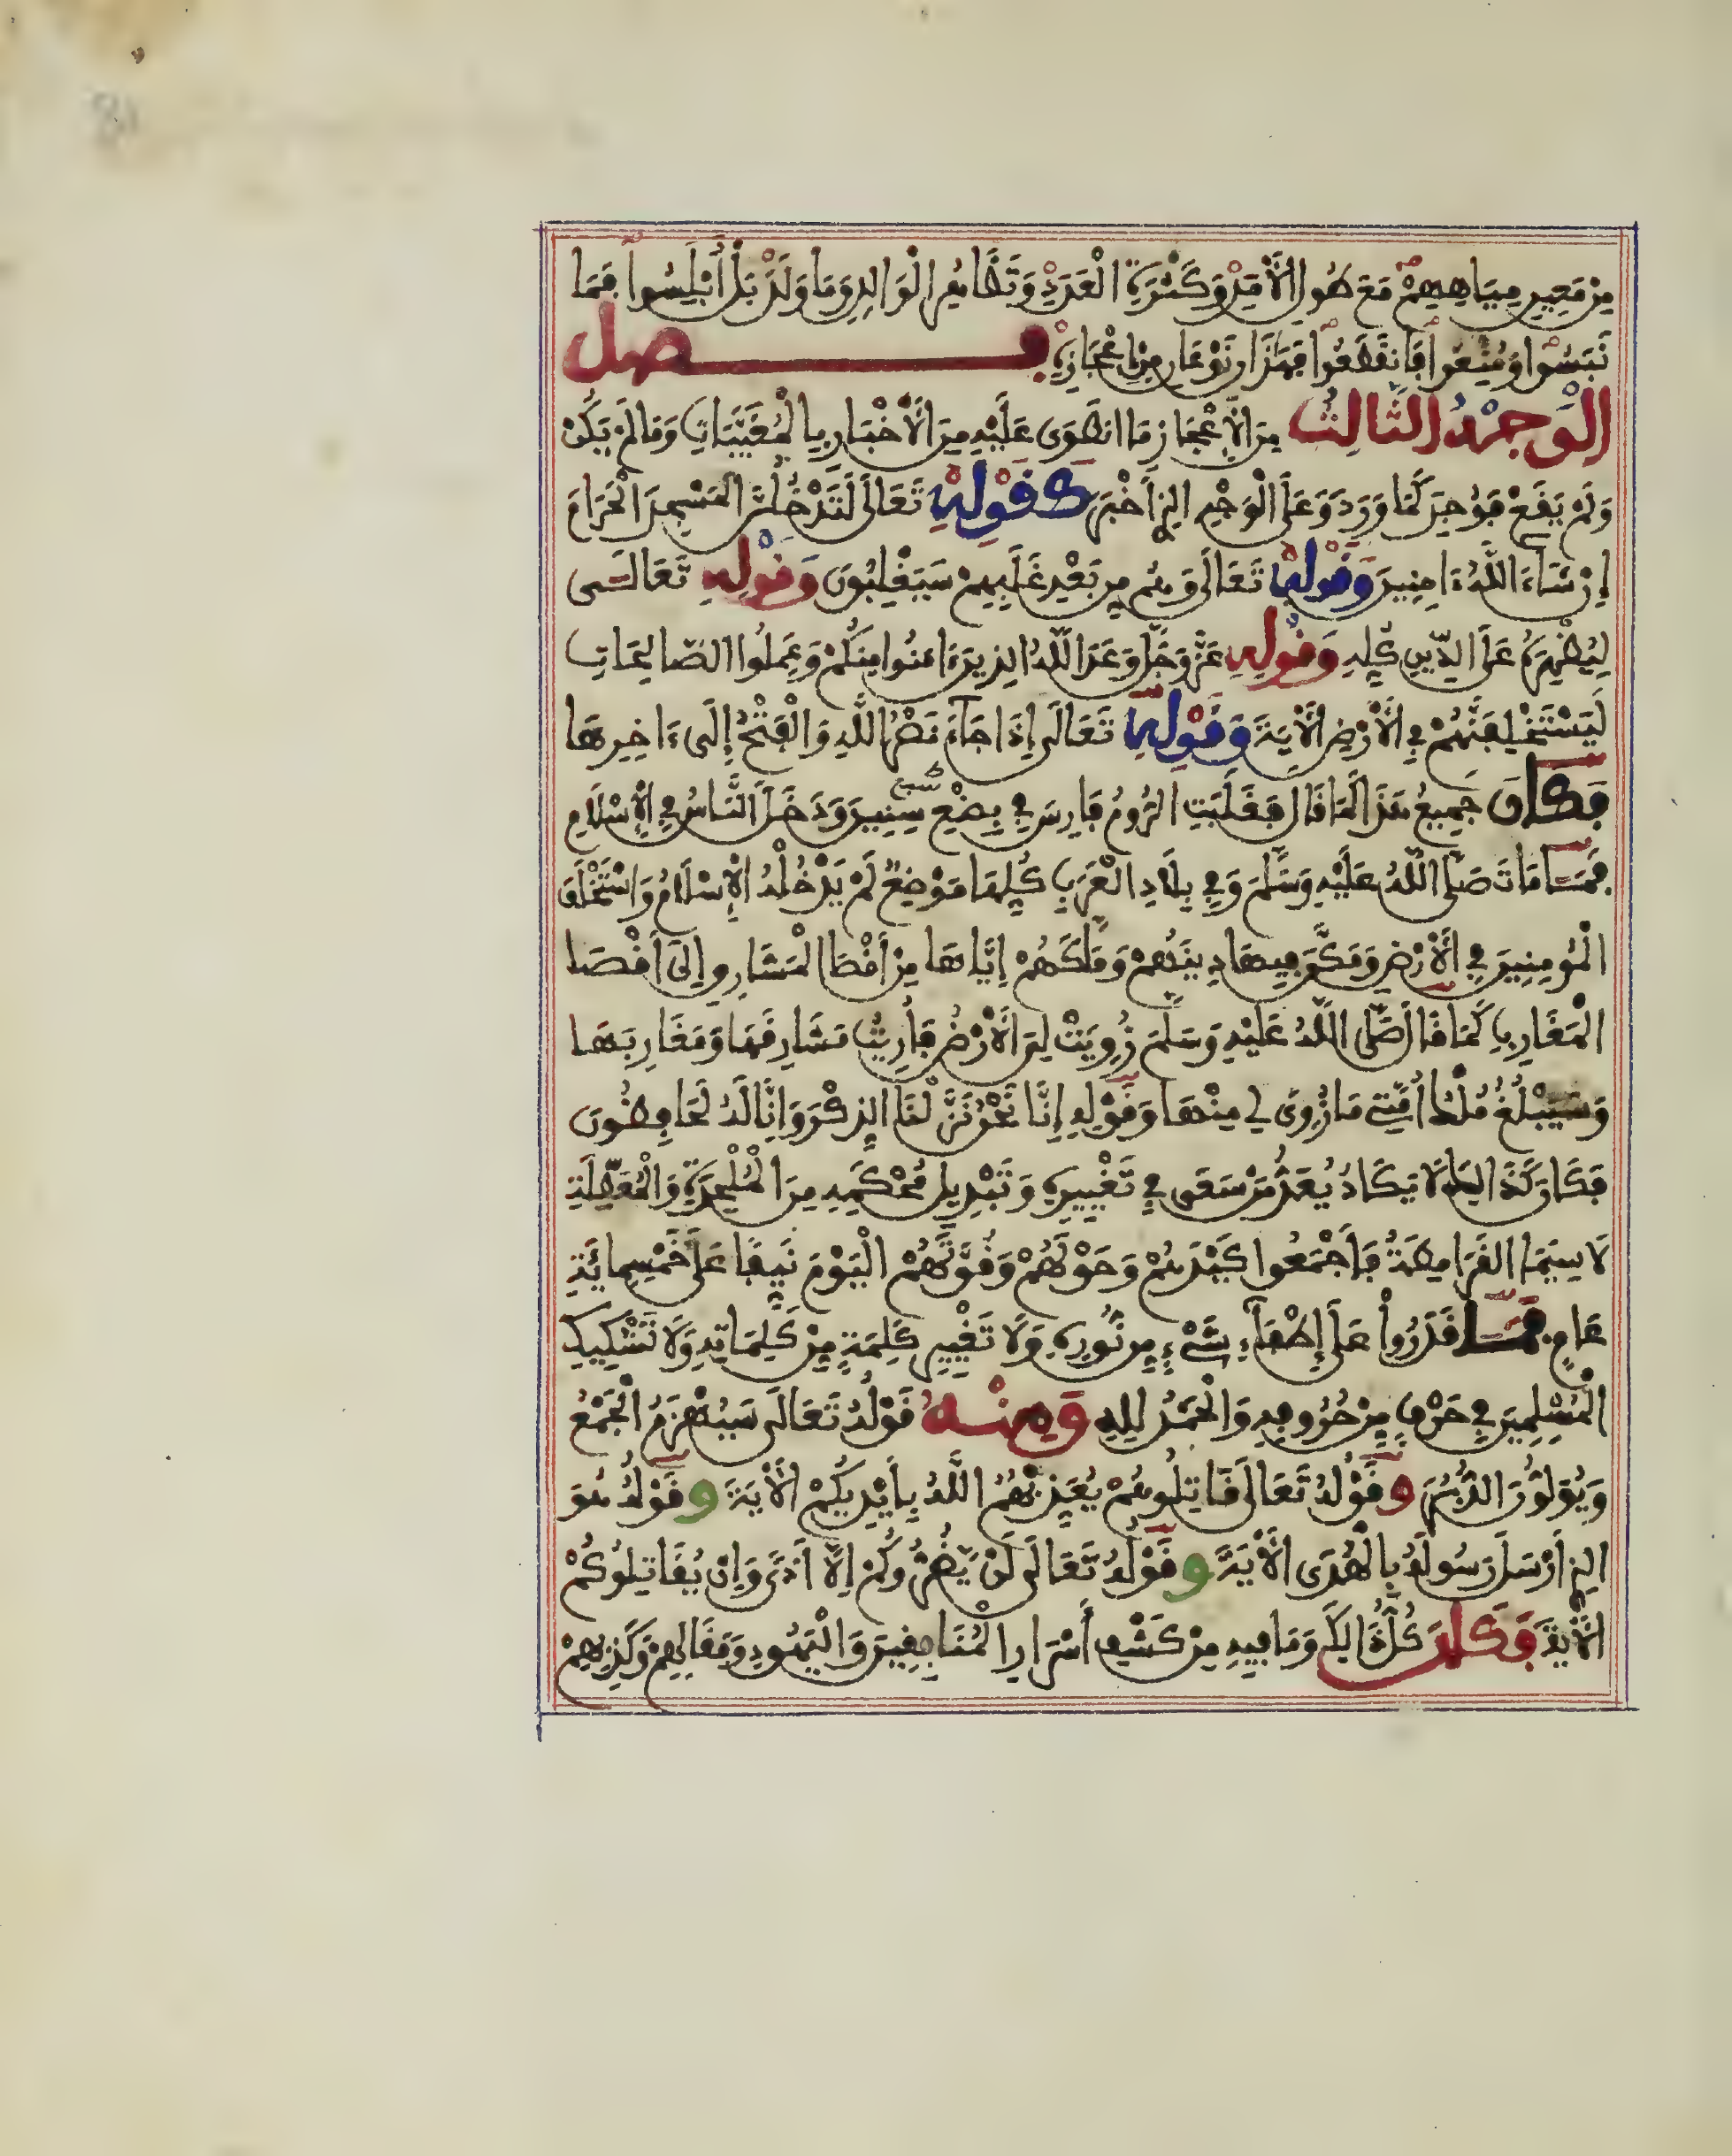 مِنْ مَعِينِ مِيَاهِهِمْ مَعَ طُولِ الْأَمَدِ وَكَثْرَةِ الْعَدَدِ وَتَظَاهُرِ الْوَالِدِ وَمَا وَلَدَ بَلْ أُبْلِسُوا فَمَا
نَبَسُوا وَمُنِعُوا فَانْقَطَعُوا فَهَذَانِ نَوْعَانِ مِنْ إِعْجَازِهِ فصل
الْوَجْهُ الثَّالِثُ مِنَ الْإِعْجَازِ مَا انْطَوَى عَلَيْهِ مِنَ الْأَخْبَارِ بِالْمُغَيَّبَاتِ وَمَا لَمْ يَكُنْ
وَلَمْ يَقَعْ فَوُجِدَ كَمَا وَرَدَ وَعَلَى الْوَجْهِ الذِي أَخْبَرَ كَقَوْلِهِ تَعَالَى لَتَدْخُلُنَّ الْمَسْجِدَ الْحَرَامَ
إِنْ شَاءَ اللَّهُ ءَامِنِينَ وَقَوْلِهِ تَعَالَى وَهُم مِن بَعْدِ غَلَبِهِمْ سَيَغْلِبُونَ وَقَوْلِهِ تَعَالَى
لِيُظْهِرَهُ عَلَى الدِّينِ كُلِّهِ وَقَوْلِهِ عَزَّ وَجَلَّ وَعَدَ اللَّهُ الذِينَ ءَامَنُوا مِنكُمْ وَعَمِلُوا الصَّالِحَاتِ
لَيَسْتَخْلِفَنَّهُمْ فِي الْأَرْضِ الْأَيَةَ وَقَوْلِهِ تَعَالَى إِذَا جَاءَ نَصْرُ اللَّهِ وَالْفَتْحُ إِلَى ءَاخِرِهَا
فَكَانَ جَمِيعُ هَذَا كَمَا قَالَ فَغَلَبَتِ الرُّومُ فَارِسَ فِي بِضْعِ سِنِينَ وَدَخَلَ النَّاسُ فِي الْإِسْلَامِ
فَمَا مَاتَ صَلَّى اللَّهُ عَلَيْهِ وَسَلَّمَ وَفِي بِلَادِ الْعَرَبِ كُلِّهَا مَوْضِعٌ لَمْ يَدْخُلْهُ الْإِسْلَامُ وَاسْتَخْلَفَ
الْمُومِنِينَ فِي الْأَرْضِ وَمَكَّنَ فِيهَا دِينَهُمْ وَمَلَّكَهُمْ إِيَّاهَا مِنْ أَقْصَا الْمَشَارِقِ إِلَى أَقْصَا
الْمَغَارِبِ كَمَا قَالَ صَلَّى اللَّهُ عَلَيْهِ وَسَلَّمَ زُوِيَتْ لِيَ الْأَرْضُ فَأُرِيتُ مَشَارِقَهَا وَمَغَارِبَهَا
وَسَيَبْلُغُ مُلْكُ أُمَّتِي مَا زُوِيَ لِي مِنْهَا وَقَوْلِهِ إِنَّا نَحْنُ نَزَّلْنَا الذِّكْرَ وَإِنَّا لَهُ لَحَافِظُونَ
فَكَانَ كَذَالِكَ لَا يَكَادُ يُعَدُّ مَنْ سَعَى فِي تَغْيِيرِهِ وَتَبْدِيلِ مُحْكَمِهِ مِنَ الْمُلْحِدَةِ وَالْمُعَطِّلَةِ
لَا سِيَمَا الْقَرَامِطَةُ فَأَجْمَعُوا كَيْدَهُمْ وَحَوْلَهُمْ وَقُوَّتَهُمْ الْيَوْمَ نَيِّفًا عَلَى خَمْسِمِائَةِ
عَامٍ فَمَا قَدَرُوا عَلَى إِطْفَاءِ شَيْءٍ مِن نُورِهِ وَلَا تَغْيِيرِ كَلِمَةٍ مِنْ كَلِمَاتِهِ وَلَا تَشْكِيكِ
الْمُسْلِمِينَ فِي حَرْفٍ مِنْ حُرُوفِهِ وَالْحَمْدُ لِلهِ وَمِنْهُ قَوْلُهُ تَعَالَى سَيُهْزَمُ الْجَمْعُ
وَيُوَلُّونَ الدُّبُرَ وَقَوْلُهُ تَعَالَى قَاتِلُوهُمْ يُعَذِّبْهُمُ اللَّهُ بِأَيْدِيكُمْ الْأَيَةَ وَقَوْلُهُ هُوَ
الذِي أَرْسَلَ رَسُولَهُ بِالْهُدَى الْأَيَةَ وَقَوْلُهُ تَعَالَى لَنْ يَّضُرُّوكُمْ إِلَّا أَذًى وَإِنْ يُقَاتِلُوكُمْ
الْأَيَةَ فَكَانَ كُلُّ ذَالِكَ وَمَا فِيهِ مِنْ كَشْفِ أَسْرَارِ الْمُنَافِقِينَ وَالْيَهُودِ وَمَقَالِهِمْ وَكَذِبِهِمْ